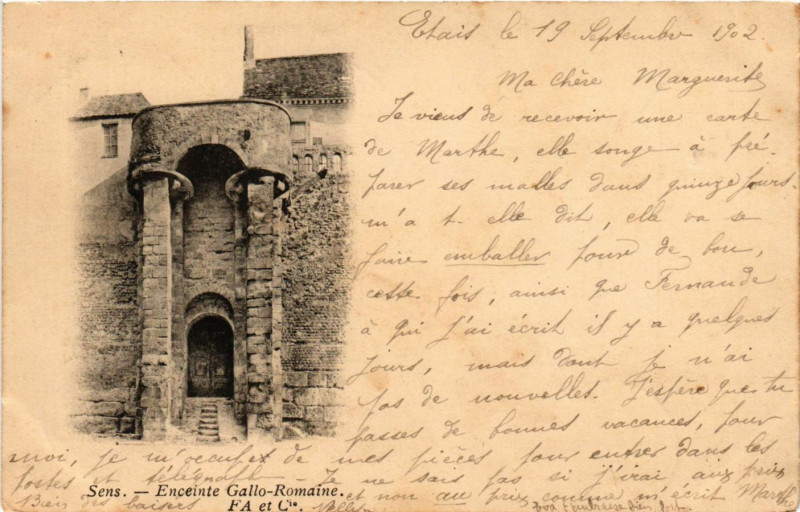 Etais le 19 Septembre 1902.
Ma chère Marguerite
Je viens de recevoir une carte
de Marthe, elle songe à pré-
parer ses malles dans quinze jours.
m'a t-elle dit, elle va se
faire emballer pour de bon,
cette fois, ainsi que Fernande
à qui j'ai écrit il y a quelques
jours, mais dont je n'ai
pas de nouvelles. J'espère que tu
passes de bonnes vacances, pour
moi, je m'occupe de mes pièces pour entrer dans les
Postes et télégraphes - Je ne sais pas si j'irai aux prix
et non au prix comme m'écrit Marthe
Bien des baisers
Sens. — Enceinte Gallo-Romaine.
FA et Cie.